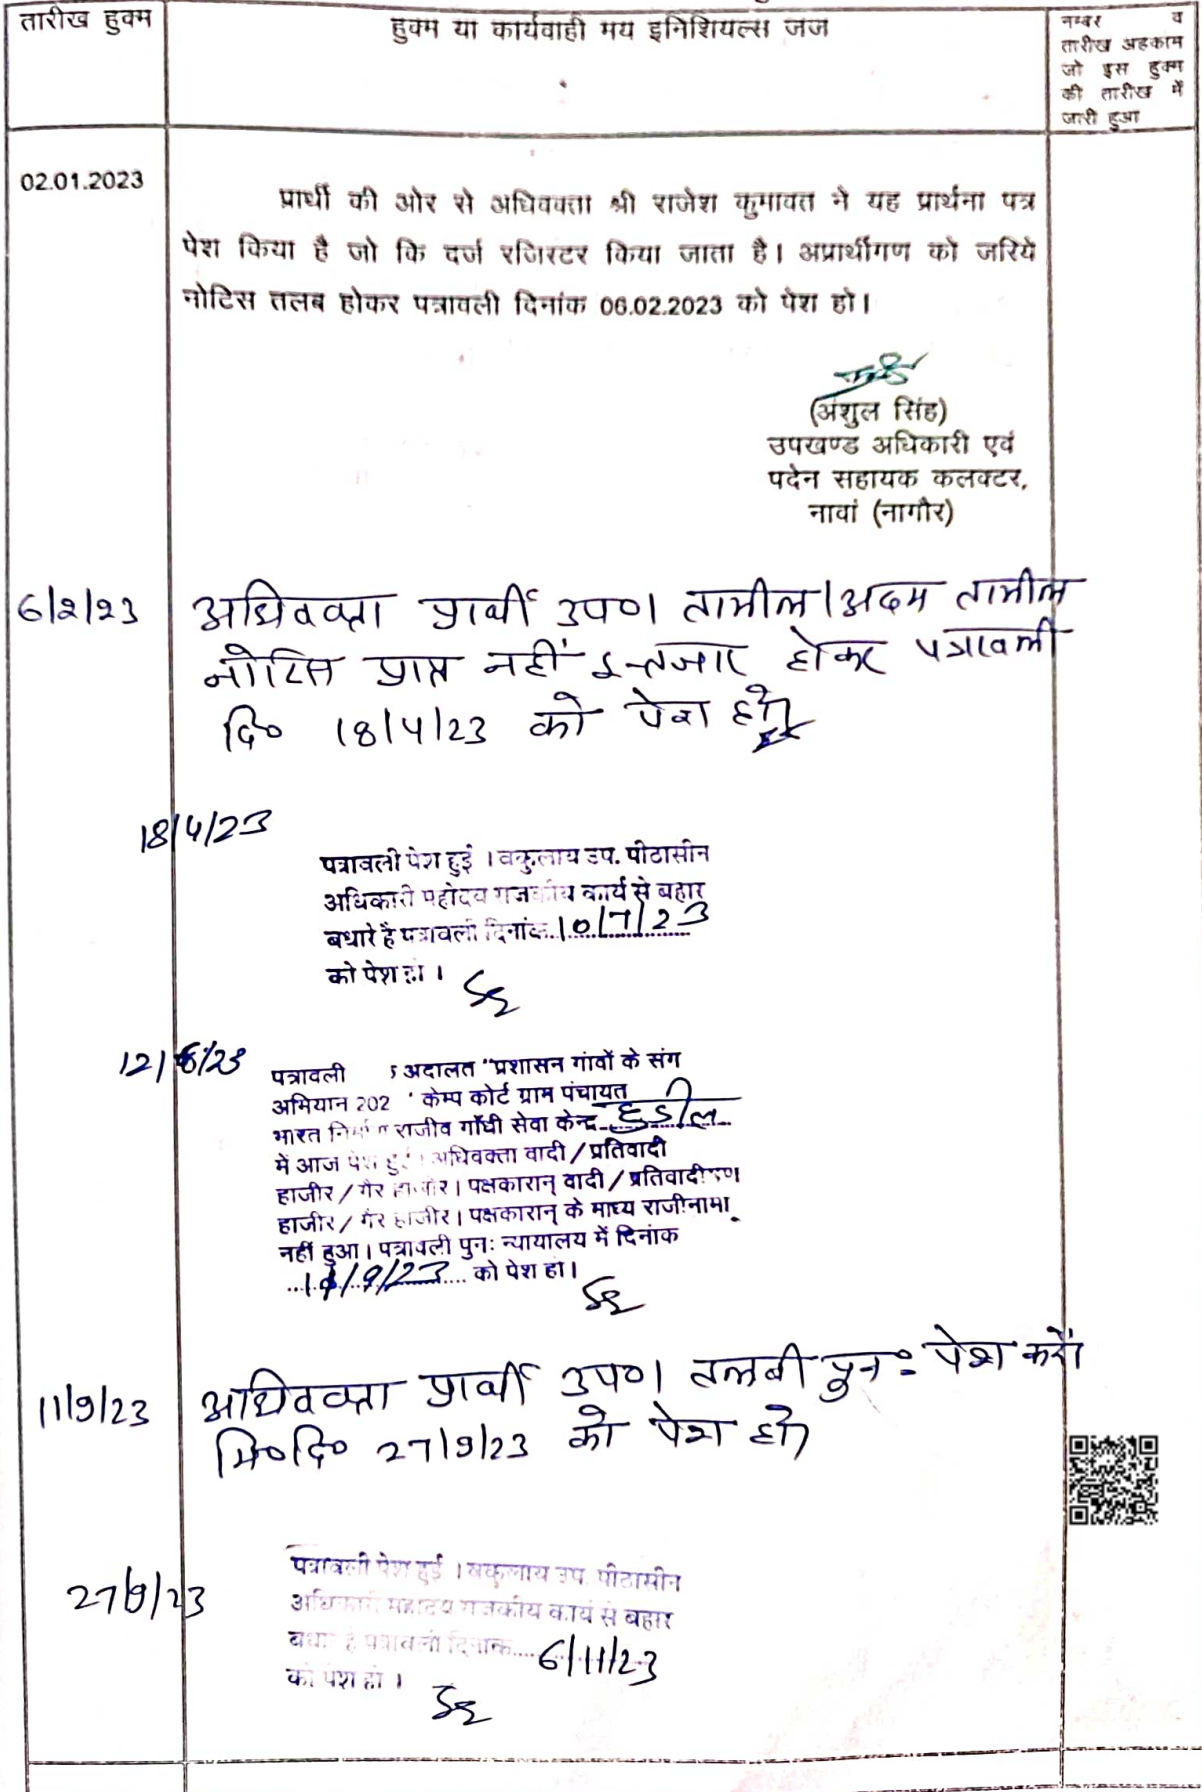 तारीख हुक्म
हुक्म या कार्यवाही मय इनिशियल्स जज
नम्बर व
तारीख अहकाम
जो इस हुक्म
की तारीख में
जारी हुआ
02.01.2023
प्रार्थी की ओर से अधिवक्ता श्री राजेश कुमावत ने यह प्रार्थना पत्र
पेश किया है जो कि दर्ज रजिस्टर किया जाता है। अप्रार्थीगण को जरिये
नोटिस तलब होकर पत्रावली दिनांक 06.02.2023 को पेश हो।
(अंशुल सिंह)
उपखण्ड अधिकारी एवं
पदेन सहायक कलक्टर,
नावां (नागौर)
6/2/23
अधिवक्ता प्रार्थी उप०। तामील/अदम तामील
नोटिस प्राप्त नहीं इन्तजार होकर पत्रावली
दि० 18/4/23 को पेश हो
18/4/23
पत्रावली पेश हुई । वकुलाय उप. पीठासीन
अधिकारी महोदय राजकीय कार्य से बहार
बधारे है पत्रावली दिनांक 10/7/23
को पेश हो ।
12/6/23
पत्रावली अदालत "प्रशासन गांवों के संग
अभियान 202 ' केम्प कोर्ट ग्राम पंचायत
भारत निर्माण राजीव गाँधी सेवा केन्द्र हुडील
में आज पेश हुई। अधिवक्ता वादी / प्रतिवादी
हाजीर / गैर हाजीर। पक्षकारान् वादी / प्रतिवादीगण
हाजीर / गैर हाजीर। पक्षकारान् के माध्य राजीनामा
नहीं हुआ। पत्रावली पुनः न्यायालय में दिनांक
11/9/23 को पेश हो।
11/9/23
अधिवक्ता प्रार्थी उप०। तलबी पुनः पेश करें।
मि०दि० 27/9/23 को पेश हो
27/9/23
पत्रावली पेश हुई । वकुलाय उप. पीठासीन
अधिकारी महोदय राजकीय कार्य से बहार
बधारे है पत्रावली दिनांक 6/11/23
को पेश हो ।